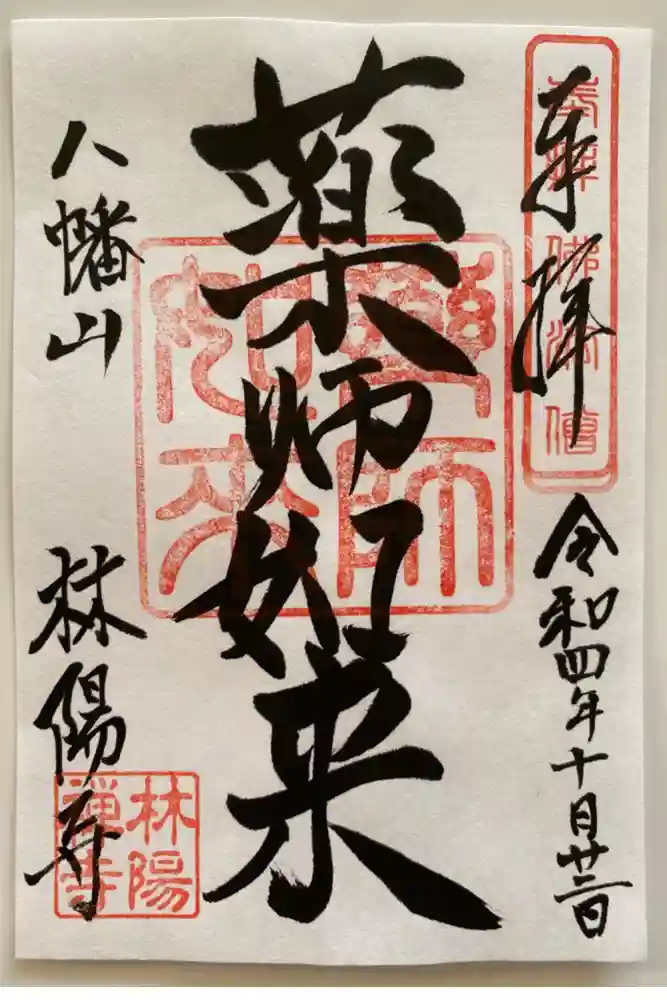 奉拝
奉拝 佛法僧
令和四年十月廿三日
薬師如来
薬師如来
八幡山
林陽寺
林陽禅寺